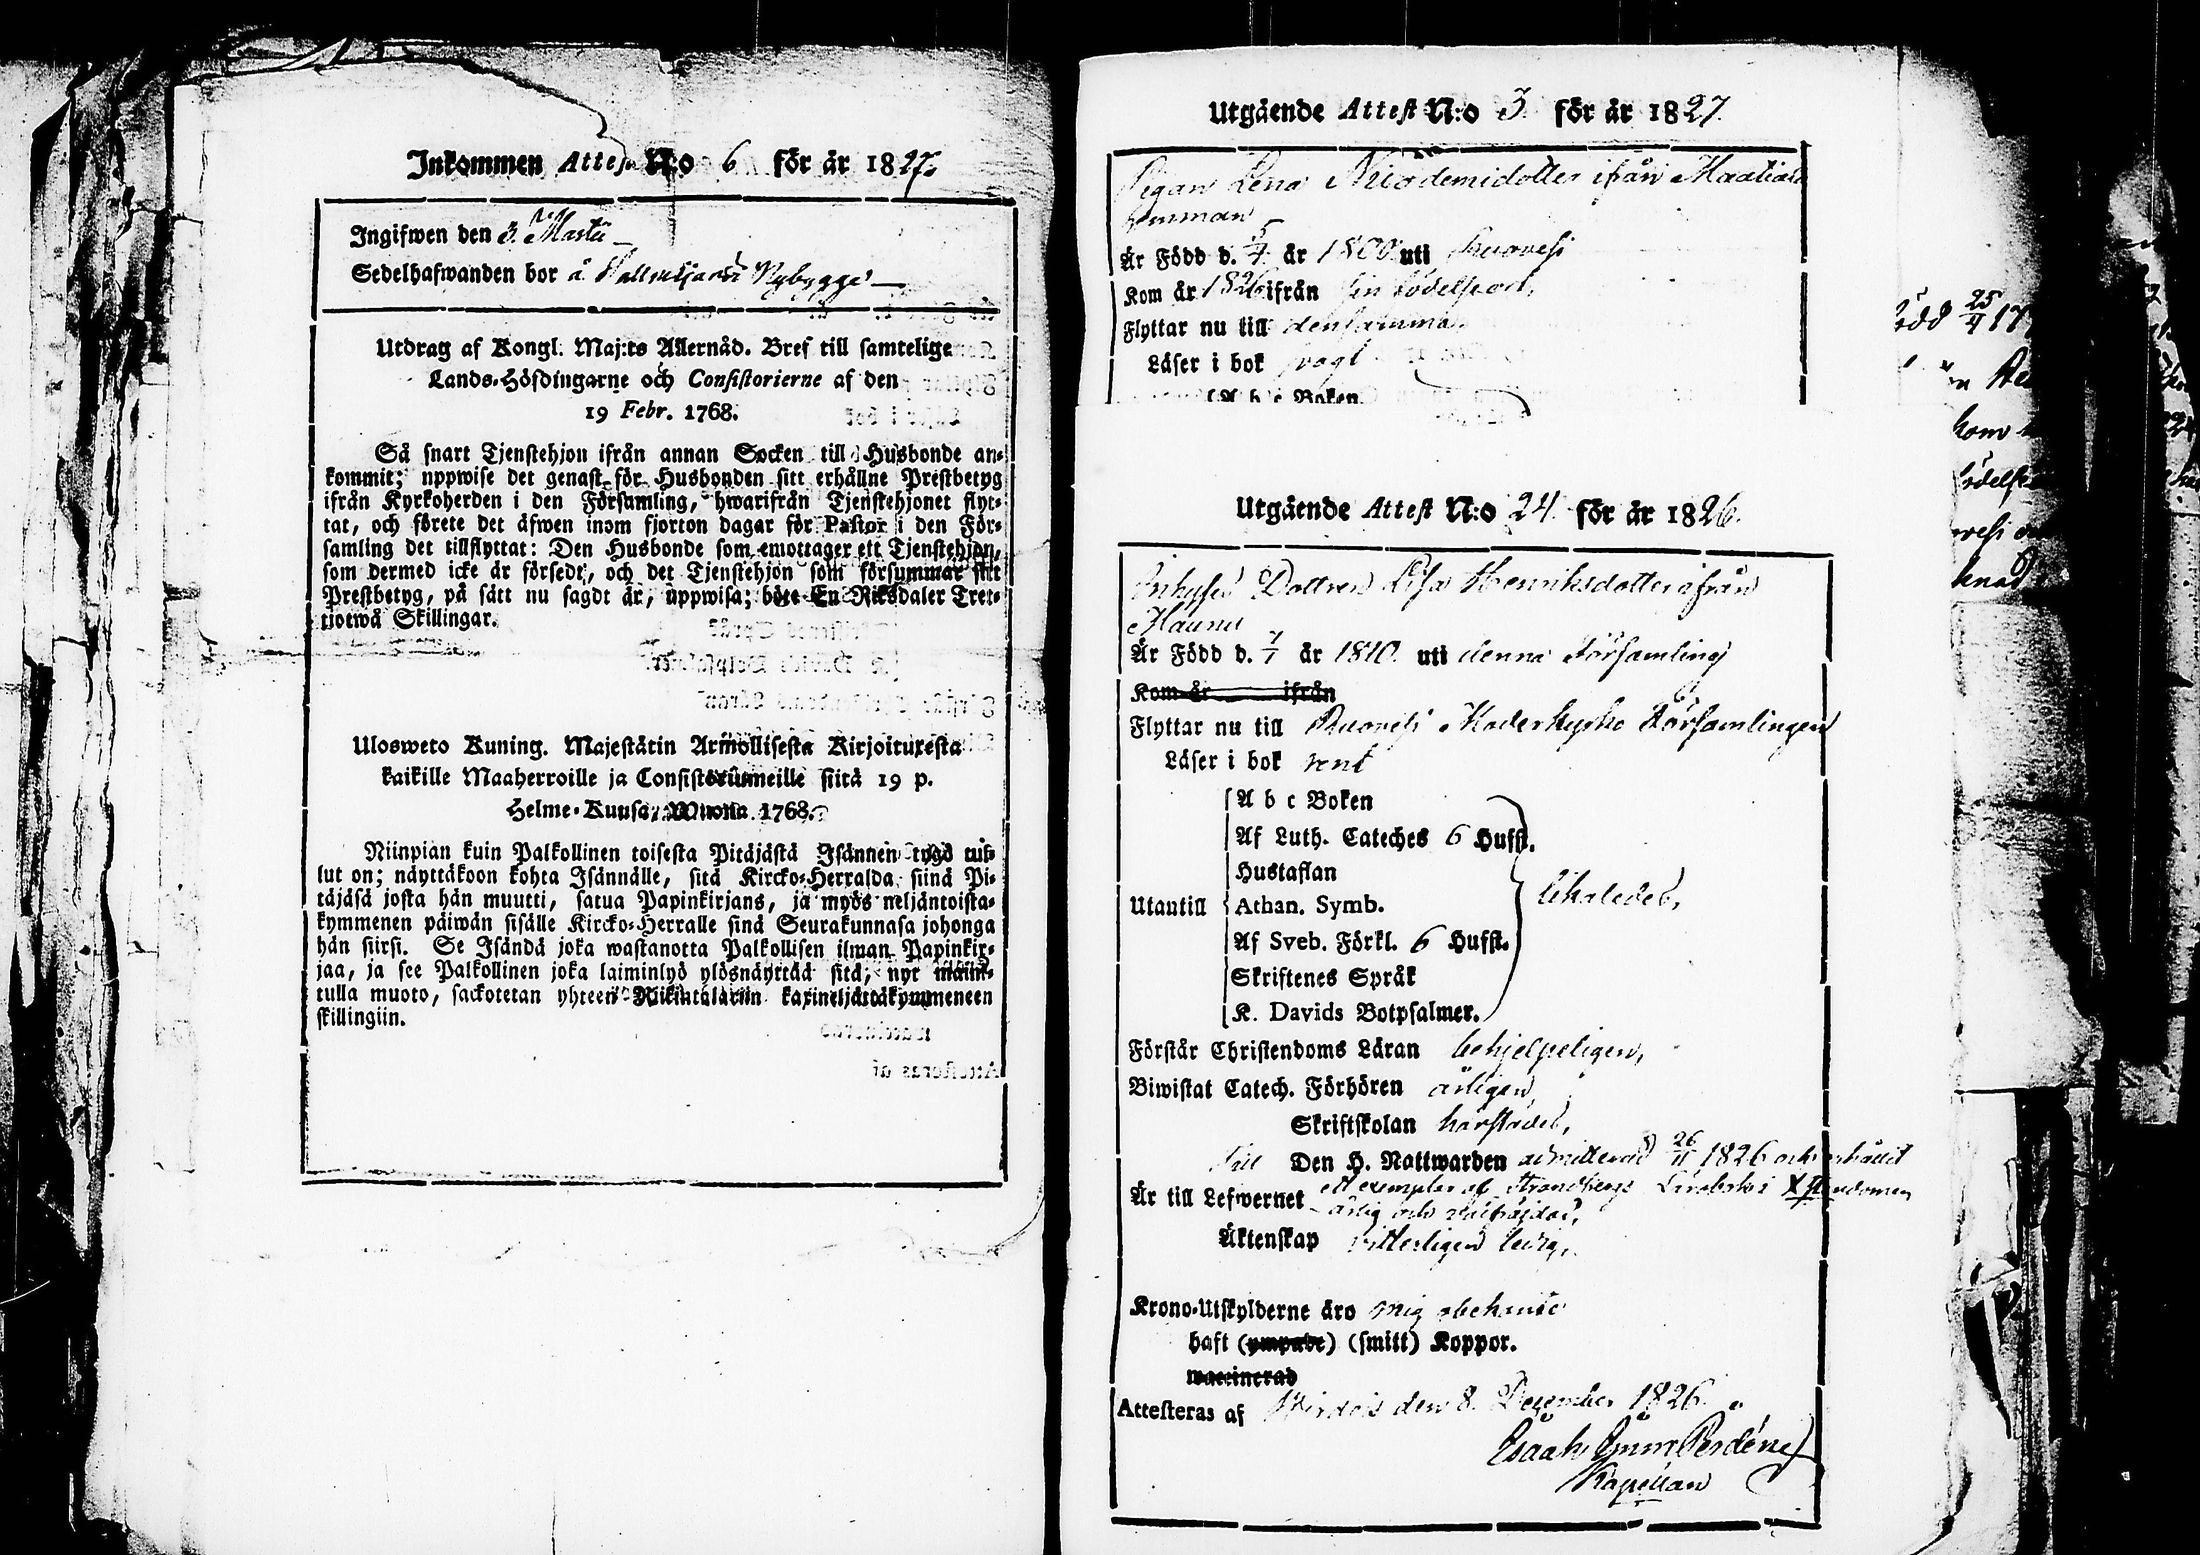 Inkommen Attest N:o 6 för år 1827.
Ingifwen den 3. Martii
Sedelhafwanden bor å Nybygge
Utdrag af Kongl. Maj:ts Allernåd. Bref till samtelige
Lands-Höfdingarne och Consistorierne af den
19 Febr. 1768.
Så snart Tjenstehjon ifrån annan Socken till Husbonde an-
kommit; uppwise det genast för Husbonden sitt erhållne Prestbetyg
ifrån Kyrkoherden i den Församling, hwarifrån Tjenstehjonet flyt-
tat, och förete det äfwen inom fjorton dagar för Pastor i den För-
samling det tillflyttat: Den Husbonde som emottager ett Tjenstehjon,
som dermed icke är försedt, och det Tjenstehjon som försummar sitt
Prestbetyg, på sätt nu sagdt är, uppwisa; böte En Riksdaler Tret-
tjotwå Skillingar.
Ulosweto Kuning. Majestätin Armollisesta Kirjoituxesta
kaikille Maaherroille ja Consistoriumeille siitä 19 p.
Helme-Kuusa, Wuonna 1768.
Niinpian kuin Palkollinen toisesta Pitäjästä Isännen tygö tul-
lut on; näyttäkoon kohta Isännälle, sitä Kircko-Herralda, siinä Pi-
täjäsä josta hän muutti, satua Papinkirjans, ja myös neljäntoista-
kymmenen päiwän sisälle Kircko-Herralle sinä Seurakunnasa johonga
hän siirsi. Se Isändä joka wastanotta Palkollisen ilman Papinkir-
jaa, ja see Palkollinen joka laiminlyö ylösnäyttää sitä, nyt mainit-
tulla muoto, sackotetan yhteen Rikintalariin kaxineljättäkymmeneen
skillingiin.
Utgående Attest N:o 3 för år 1827.
Pigan Lena Nicodemidotter ifrån
hemman
Är Född d. 5/4 år 1800 uti Ruovesi
Kom år 1826 ifrån sin födelseort,
Flyttar nu till densamma.
Läser i bok svagt
A b c Boken
Utgående Attest N:o 24. för år 1826.
Inhyses Dottren Lisa Henriksdotter ifrån
Är Född d. år 1810. uti denna Församling
Kom år ifrån
Flyttar nu till Ruovesi Moderkyrko Församlingen
Läser i bok rent
A b c Boken
Af Luth. Cateches 6 Hufst.
Hustaflan
Utantill Athan. Symb. likaledes,
Af Sveb. Förkl. 6 Hufst.
Skriftenes Språk
K. Davids Botpsalmer.
Förstår Christendoms Läran behjelpeligen,
Biwistat Catech. Förhören årligen
Skriftskolan härstädes,
Till Den H. Nattwarden admitterad 26/11 1826 och erhållit
ett exemplar af Strandbergs Lärobok i Xstendomen
Är till Lefwernet ärlig och
Äktenskap witterligen ledig,
Krono-Utskylderne äro mig obekante
haft (ympade) (smitt) Koppor.
waccinerad
Attesteras af Wirdois den 8. December 1826.
Isaak Imm:
Kapellan
född 25/4 17
kom
födelse